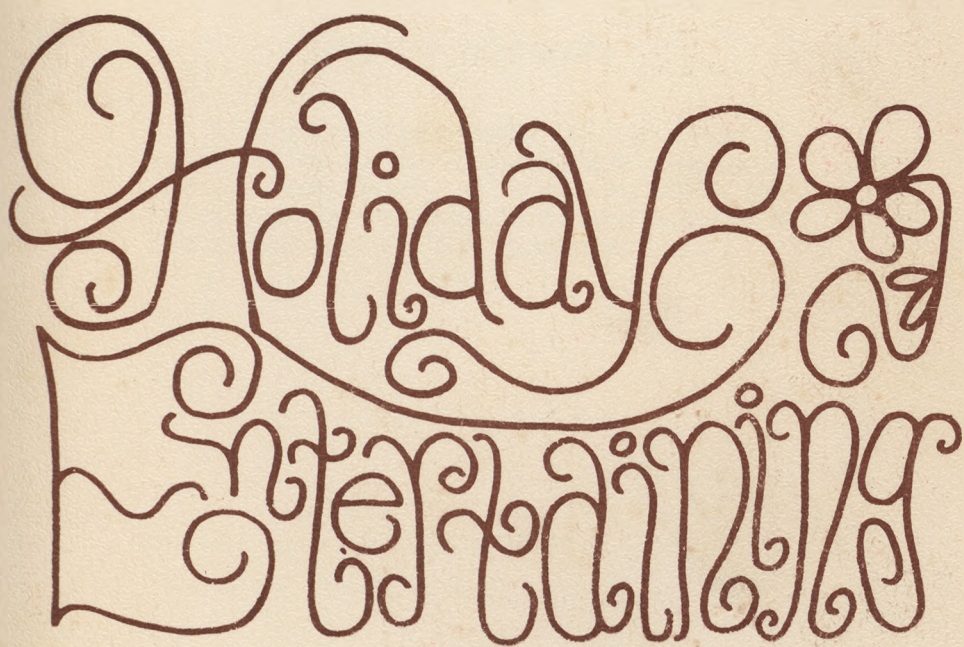 Holiday
Entertaining